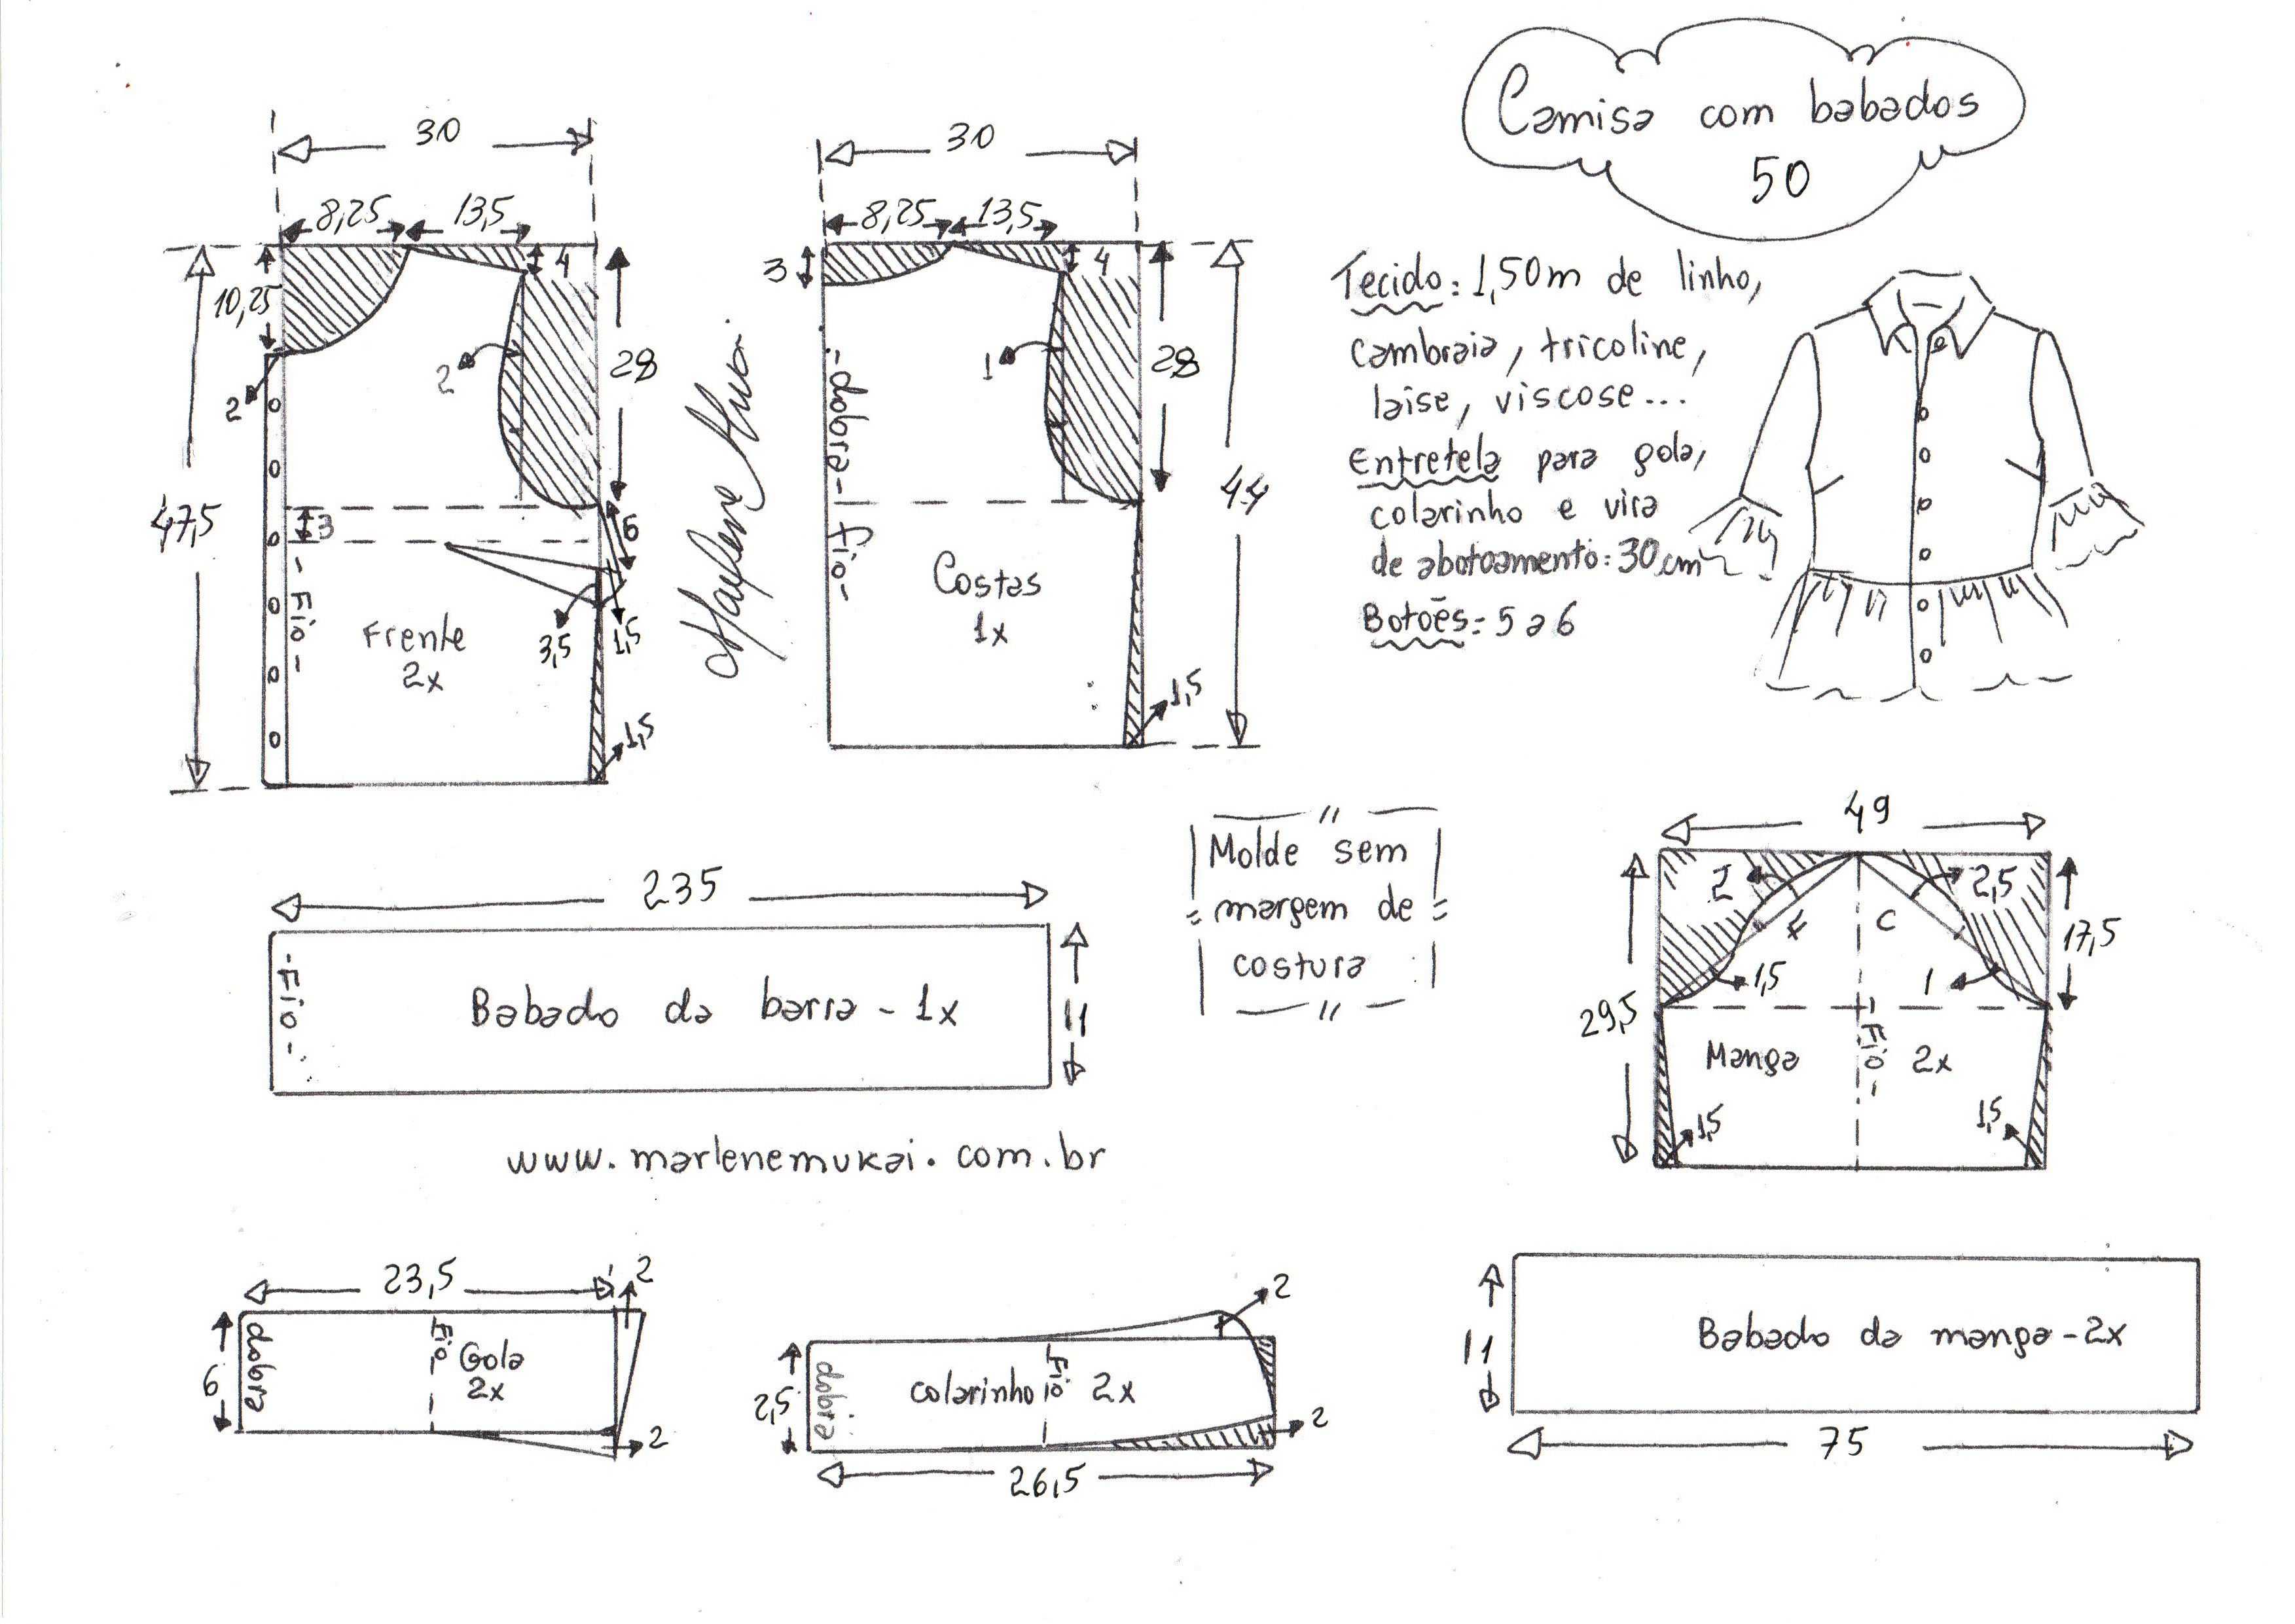 Camisa com babados
50
Tecido: 1,50m de linho,
cambraia, tricoline,
laise, viscose...
Entretela para gola,
colarinho e vira
de abotoamento: 30cm
Botões: 5 a 6
30
8,25 13,5
4
10,25
2
2
28
47,5
3
6
-Fio-
Frente
2x
3,5
1,5
1,5
Marlene Mukai
30
8,25 13,5
3
4
1
28
44
-dobra-
fio-
Costas
1x
1,5
235
-Fio-
Babado da barra - 1x
11
Molde sem
margem de
costura
49
2
2,5
F
C
17,5
1,5
1
29,5
-Fio-
Manga 2x
1,5
1,5
www.marlenemukai.com.br
23,5
2
6
dobra
Fio
Gola
2x
2
2
2,5
dobra
colarinho 2x
Fio
2
26,5
11
Babado da manga - 2x
75